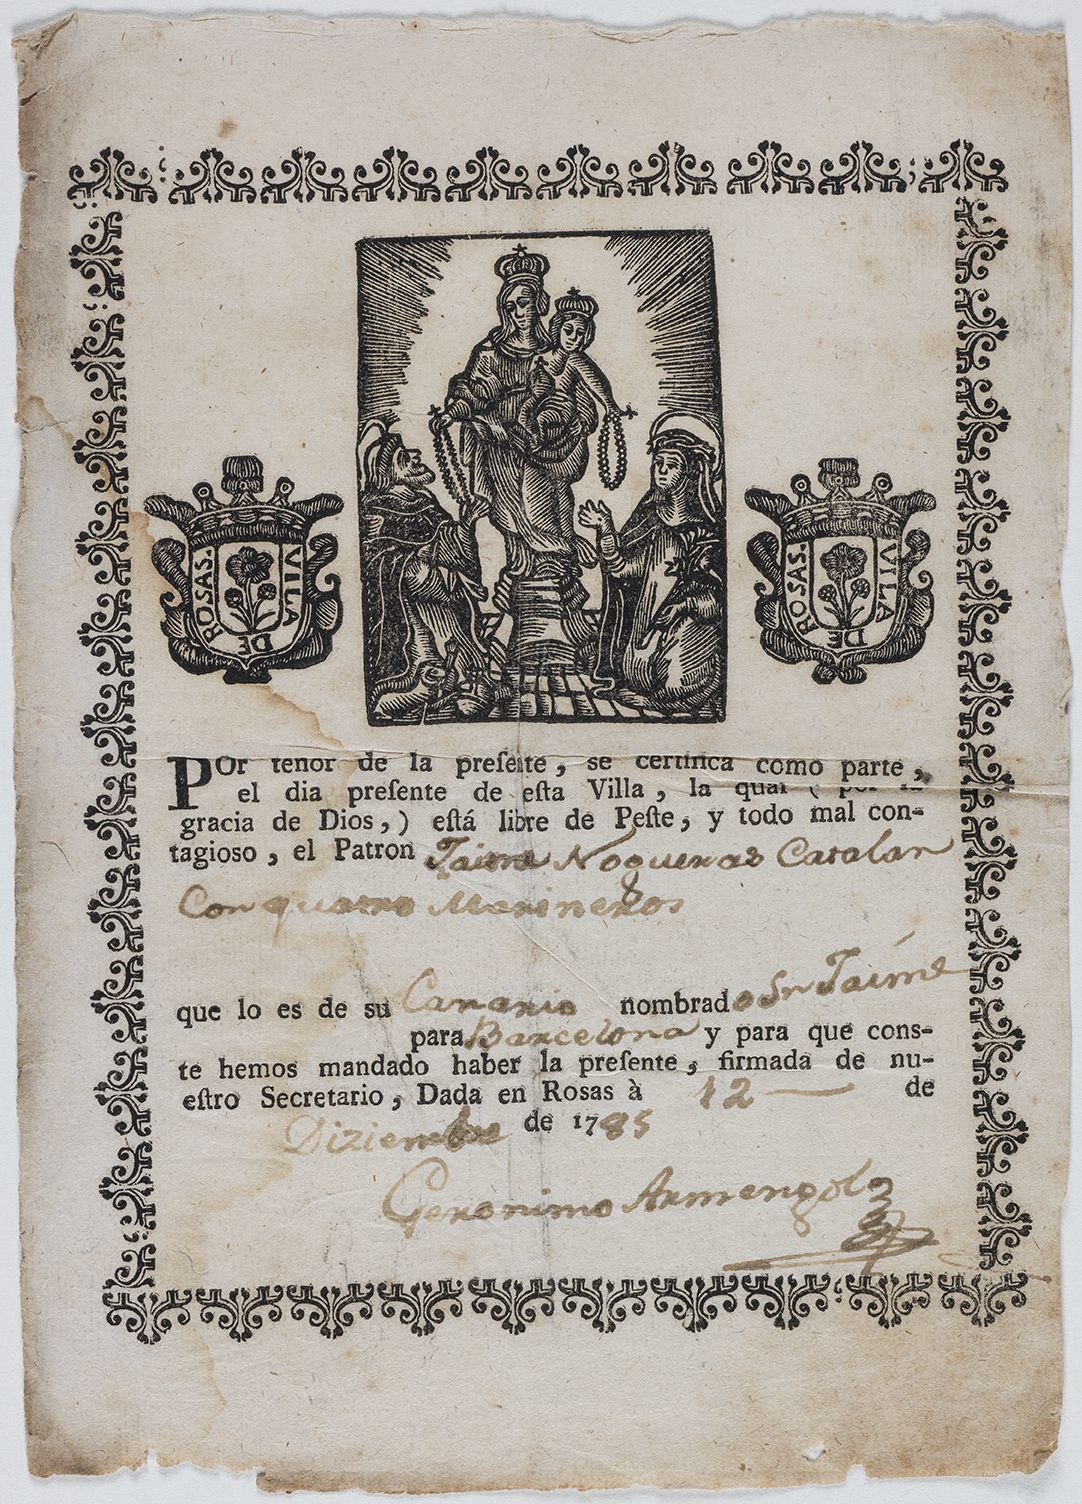 VILA DE ROSAS.
VILA DE ROSAS.
POr tenor de la preſente, se certifica como parte,
el dia preſente de eſta Villa, la qual ( por la
gracia de Dios,) eſtá libre de Peſte, y todo mal con-
tagioso, el Patron Jaime Nogueras Catalan
Con quatro Marineros
que lo es de su Canario nombrado Sn Jaíme
para Barcelona y para que cons-
te hemos mandado haber la preſente, firmada de nu-
eſtro Secretario, Dada en Rosas à 12 de
Diziembre de 1785
Geronimo Armengol